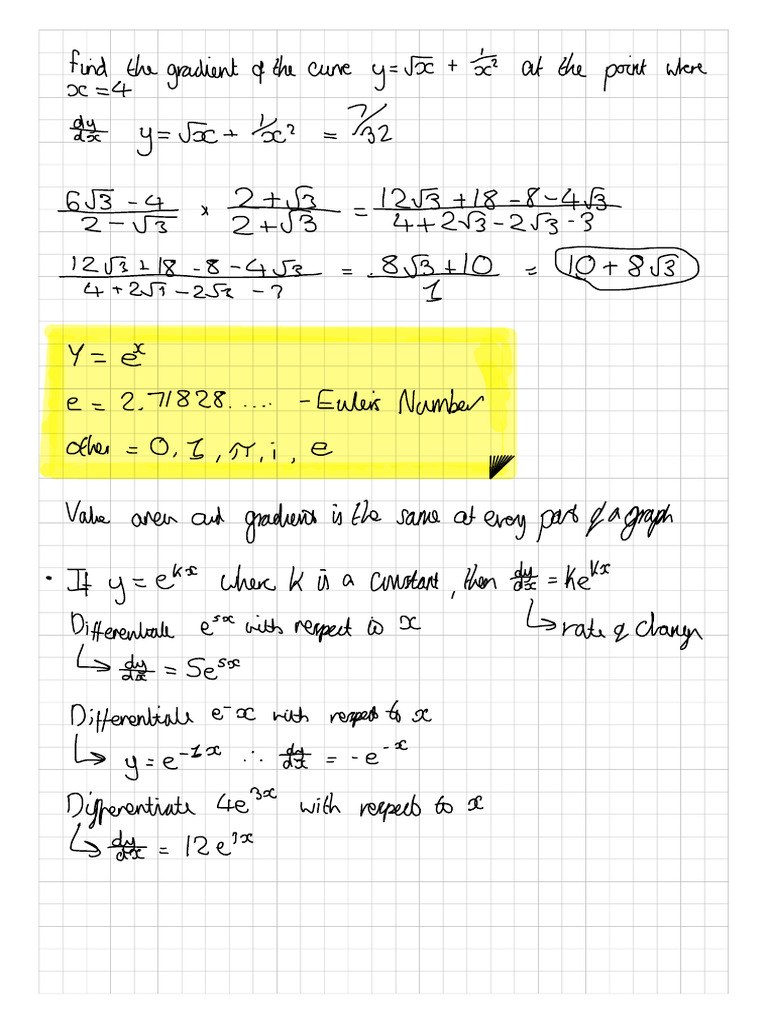 find the gradient of the curve y=√x + 1/x² at the point where
x=4
dy/dx y=√x + 1/x² = 7/32
(6√3 - 4)/(2 - √3) × (2+√3)/(2+√3) = (12√3 + 18 - 8 - 4√3)/(4+2√3-2√3-3)
(12√3 + 18 - 8 - 4√3)/(4+2√3-2√3-3) = (8√3+10)/1 = 10+8√3
Y = e^x
e = 2.71828..... - Euler's Number
other = 0, 1, π, i, e
Value area and gradient is the same at every part of a graph
· If y = e^kx where k is a constant, then dy/dx = Ke^kx
Differentiate e^5x with respect to x ↳ rate of change
↳ dy/dx = 5e^5x
Differentiate e^-x with respect to x
↳ y = e^-1x ∴ dy/dx = -e^-x
Differentiate 4e^3x with respect to x
↳ dy/dx = 12e^3x